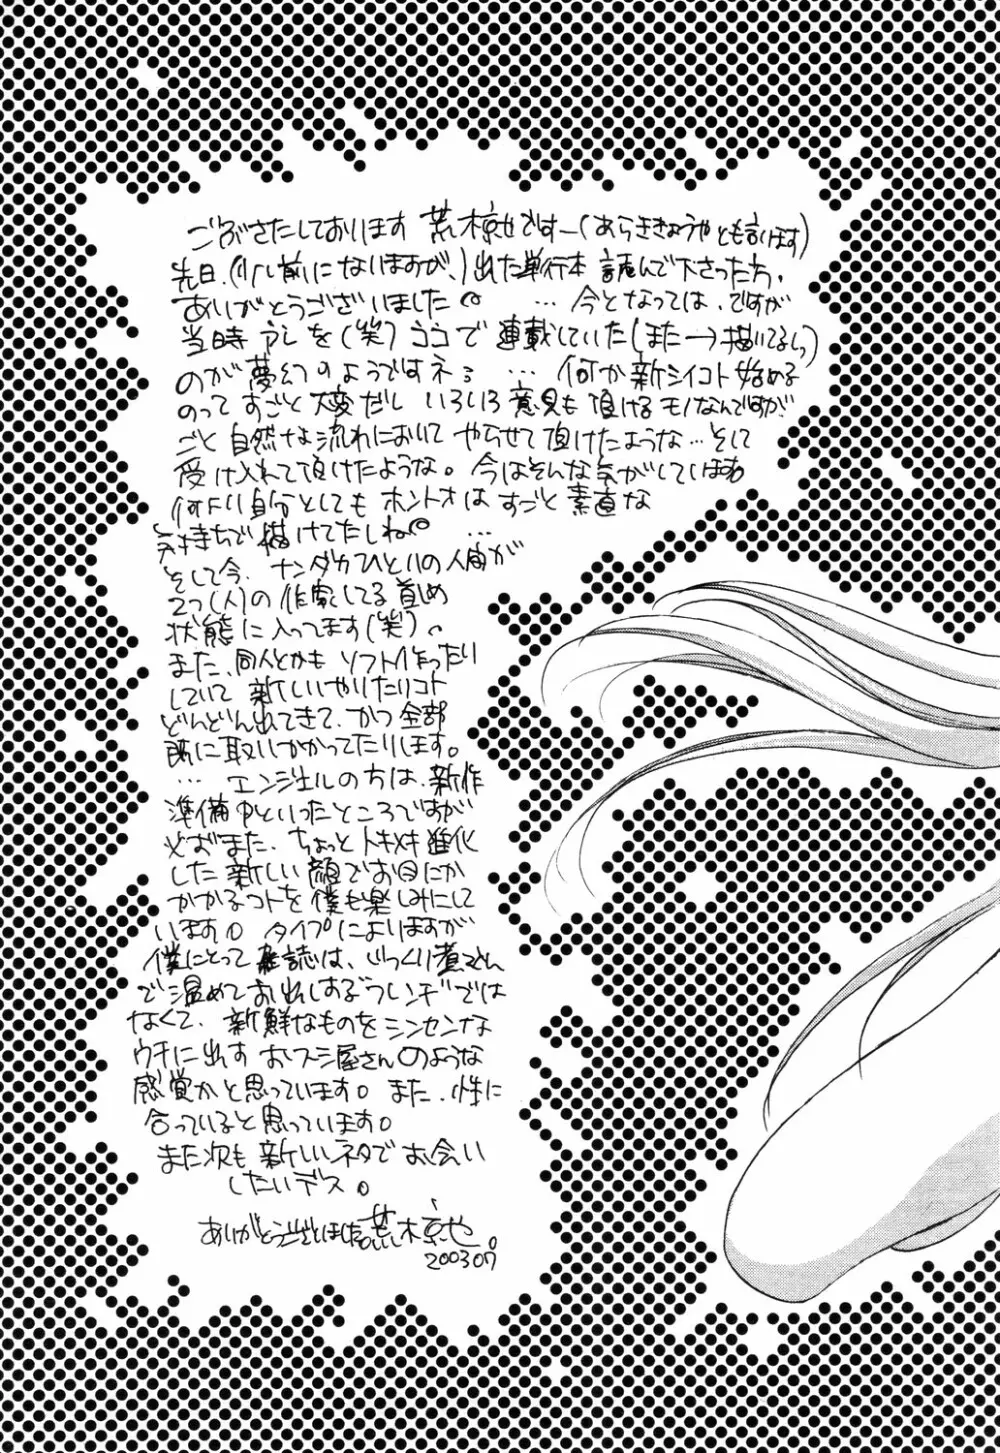 ごぶさたしております 荒木京也です―(あらききょうやとも言います)
先日、(少し前になりますが、)出た単行本 読んで下さった方、
ありがとうございました。 … 今となっては、ですが
当時 ラレを(笑) ココで 連載していた(また→描いてるし)
のが夢幻のようですネ。 … 何か新シイコト始める
のってすごく大変だし いろいろ意見も頂けるモノなんですが
ごく自然な流れにおいて やらせて頂けたような…そして
受け入れて頂けたような。今はそんな気がしていますね
何より自分としても ホントオはすごく 素直な
気持ちで描けてたしね。 …
そして今、ナンダカひとりの人間が
2つ(人)の作家してる
状態に入ってます(笑)。
また、同人とかも ソフト作ったり
していて 新しいやりたいコト
どんどん出てきて、かつ全部
既に取りかかってたりします。
… エンジェルの方は、新作
準備中といったところですが
またちょっとトキメキ進化
した新しい顔でお目にか
かかるコトを僕も楽しみにして
います。 タイプによりますが
僕にとって雑誌は、じっくり煮こん
で温めてお出しする
なくて、新鮮なものをシンセンな
ウチに出す おスシ屋さんのような
感覚かと思っています。また、性に
合っていると思っています。
また次も 新しいネタで お会い
したいデス。
ありがとうございました 荒木京也。
200307